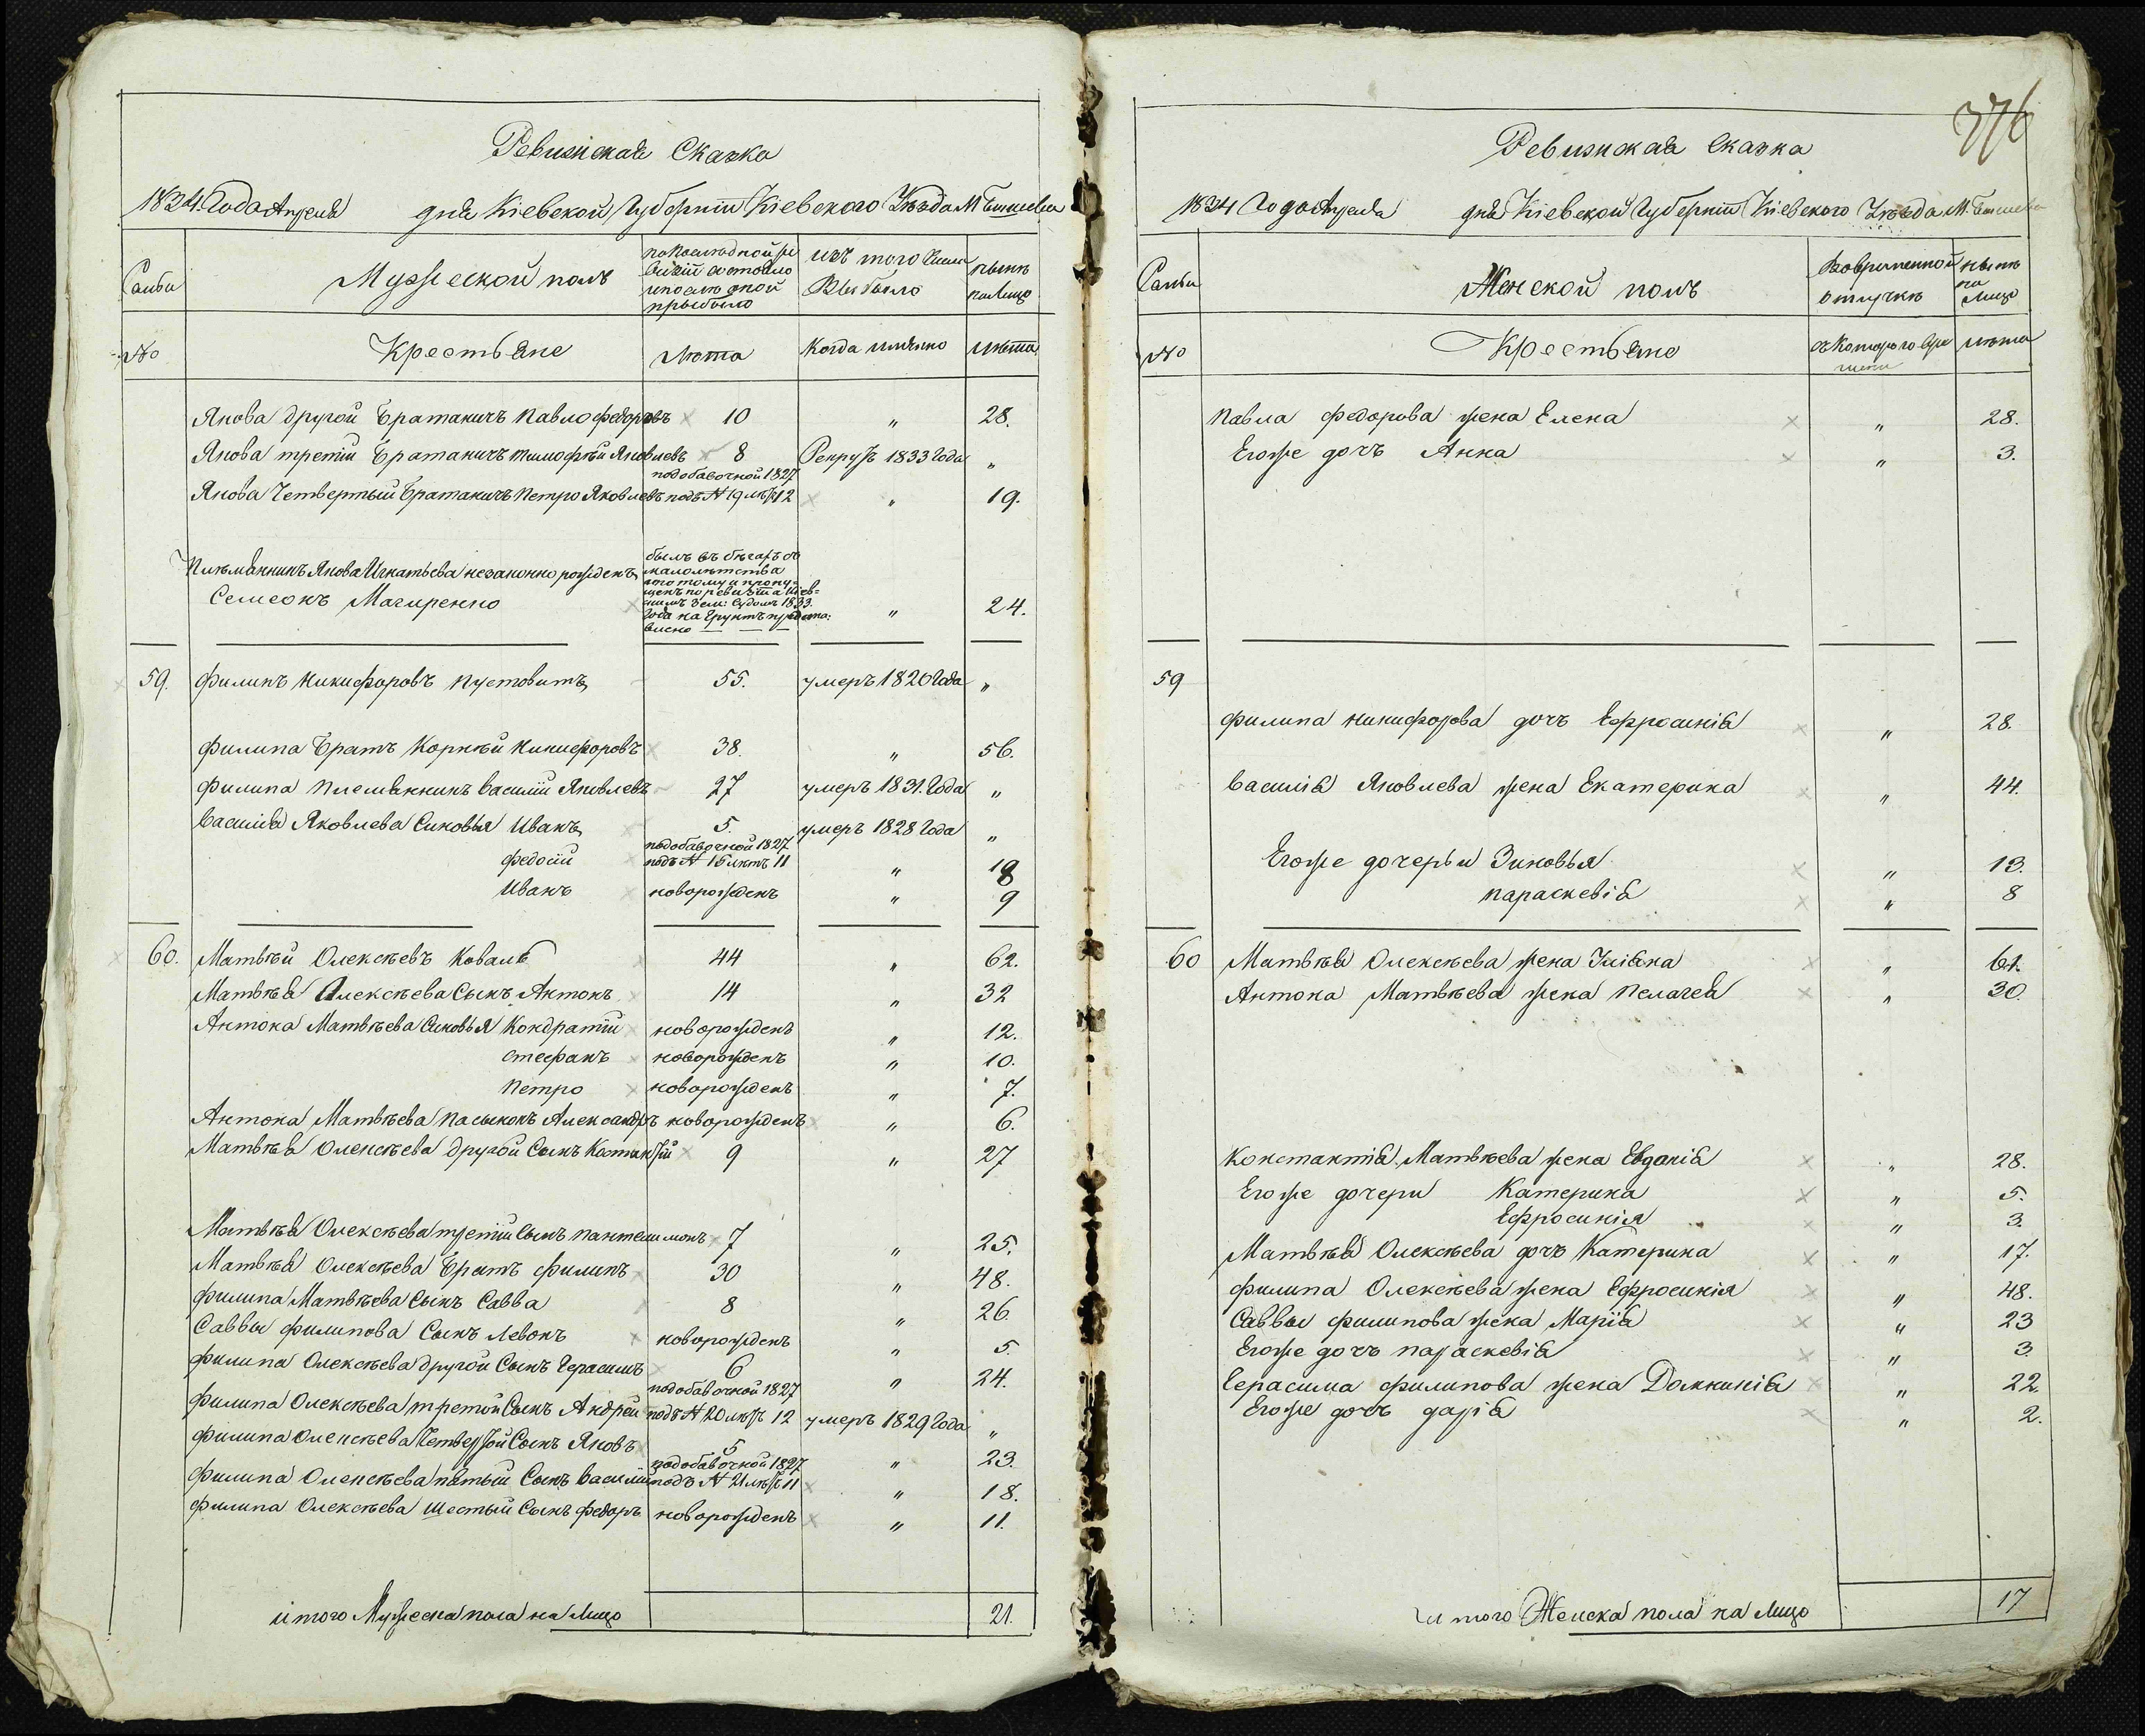 Ревизская Сказка
1834. Года Апреля дня Кіевской Губерніи Кіевского Уезда М. Бышева
Семьи
Мужеской полъ
по последной ре
визіи состояло
и после оной
прыбыло
изъ того числа
Выбыло
ныне
на Лицо
№
Крестьяне
лета
Когда имянно
лета
Якова другой Братаничъ Павло Федоровъ 10 " 28.
Якова третій Братаничъ тимофей Яковлевъ 8 Рекрутъ 1833 Года "
по добавочной 1827
Якова Четвертый Братаничъ Петро Яковлевъ подъ № 19 летъ 12 " 19.
былъ въ бегахъ съ
малолетства
потому и пропу-
щенъ по ревизіи а Кіев=
скимъ Зем: Судомъ 1833.
Года на Грунтъ предста:
влено
Племянникъ Якова Игнатьева незаконно рожденъ
Семеонъ Магиренко " 24.
59. Филипъ Никифоровъ Пустовитъ 55. умеръ 1820 Года "
Филипа Братъ Корней Никифоровъ 38. " 56.
Филипа Племянникъ Василій Яковлевъ 27 умеръ 1831. Года "
Василія Яковлева Сыновья Иванъ 5. умеръ 1828 Года "
по добавочной 1827
Федосій подъ № 15 летъ 11 " 18
Иванъ новорожденъ " 9
60. Матвей Олексеевъ Коваль 44 " 62.
Матвея Алексеева Сынъ Антонъ 14 " 32
Антона Матвеева Сыновья Кондратій новорожденъ " 12.
Стефанъ новорожденъ " 10.
Петро новорожденъ " 7.
Антона Матвеева Пасынокъ Александръ новорожденъ " 6.
Матвея Олексеева другой Сынъ Костантій 9 " 27
Матвея Олексеева третій Сынъ Пантелимонъ 7 " 25.
Матвея Олексеева Братъ Филипъ 30 " 48.
Филипа Матвеева Сынъ Савва 8 " 26.
Саввы Филипова Сынъ Левонъ новорожденъ " 5.
Филипа Олексеева другой Сынъ Герасимъ 6 " 24.
по добавочной 1827
Филипа Олексеева третой Сынъ Андрей подъ № 20 летъ 12 умеръ 1829 Года "
Филипа Олексеева Четвертой Сынъ Яковъ 5 " 23.
по добавочной 1827
Филипа Олексеева пятый Сынъ Василій подъ № 21 летъ 11 " 18.
Филипа Олексеева Шестый Сынъ Федоръ новорожденъ " 11.
итого Мужеска пола на Лицо 21.
376
Ревизская Сказка
1834 Года Апреля дня Кіевской Губерніи Кіевского Уезда М. Бышева
Семьи
Женской полъ
Во временной
отлучке
ныне
на
Лицо
№
Крестьяне
съ Которого вре
мени
лета
Павла Федорова жена Елена " 28.
Егоже дочъ Анна " 3.
59
Филипа Никифорова дочъ Ефросинія " 28.
Василія Яковлева жена Екатерина " 44.
Егоже дочерьи Зиновья " 13.
Параскевія " 8
60 Матвея Олексеева жена Уліяна " 61.
Антона Матвеева жена Пелагея " 30.
Константія Матвеева жена Евдокія " 28.
Егоже дочери Катерина " 5.
Ефросинія " 3.
Матвея Олексеева дочъ Катерина " 17.
Филипа Олексеева жена Ефросинія " 48.
Саввы Филипова жена Марія " 23
Егоже дочъ Параскевія " 3
Герасима Филипова жена Домникія " 22.
Егоже дочъ дарія " 2.
итого Женска пола на Лицо 17